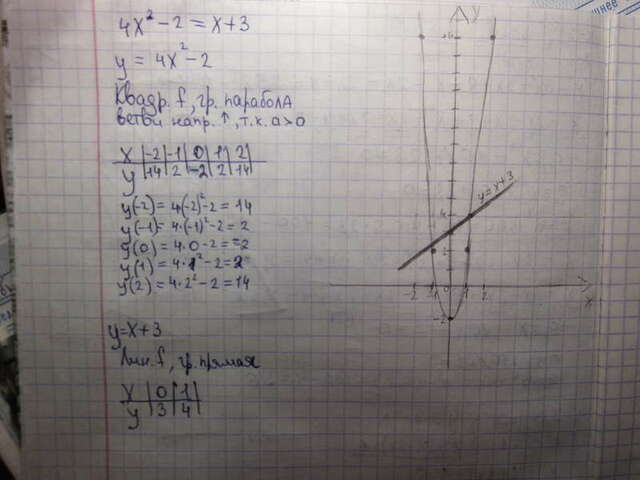 4x² - 2 = x + 3
y = 4x² - 2
Квадр. f, гр. парабола
ветви напр. ↑, т.к. a > 0
x | -2 | -1 | 0 | 1 | 2
y | 14 | 2 | -2 | 2 | 14
y(-2) = 4·(-2)² - 2 = 14
y(-1) = 4·(-1)² - 2 = 2
y(0) = 4·0 - 2 = -2
y(1) = 4·1² - 2 = 2
y(2) = 4·2² - 2 = 14
y = x + 3
Лин. f, гр. прямая
x | 0 | 1
y | 3 | 4
y
y = x + 3
4
2
0
-2 -1 1 2
x
-2